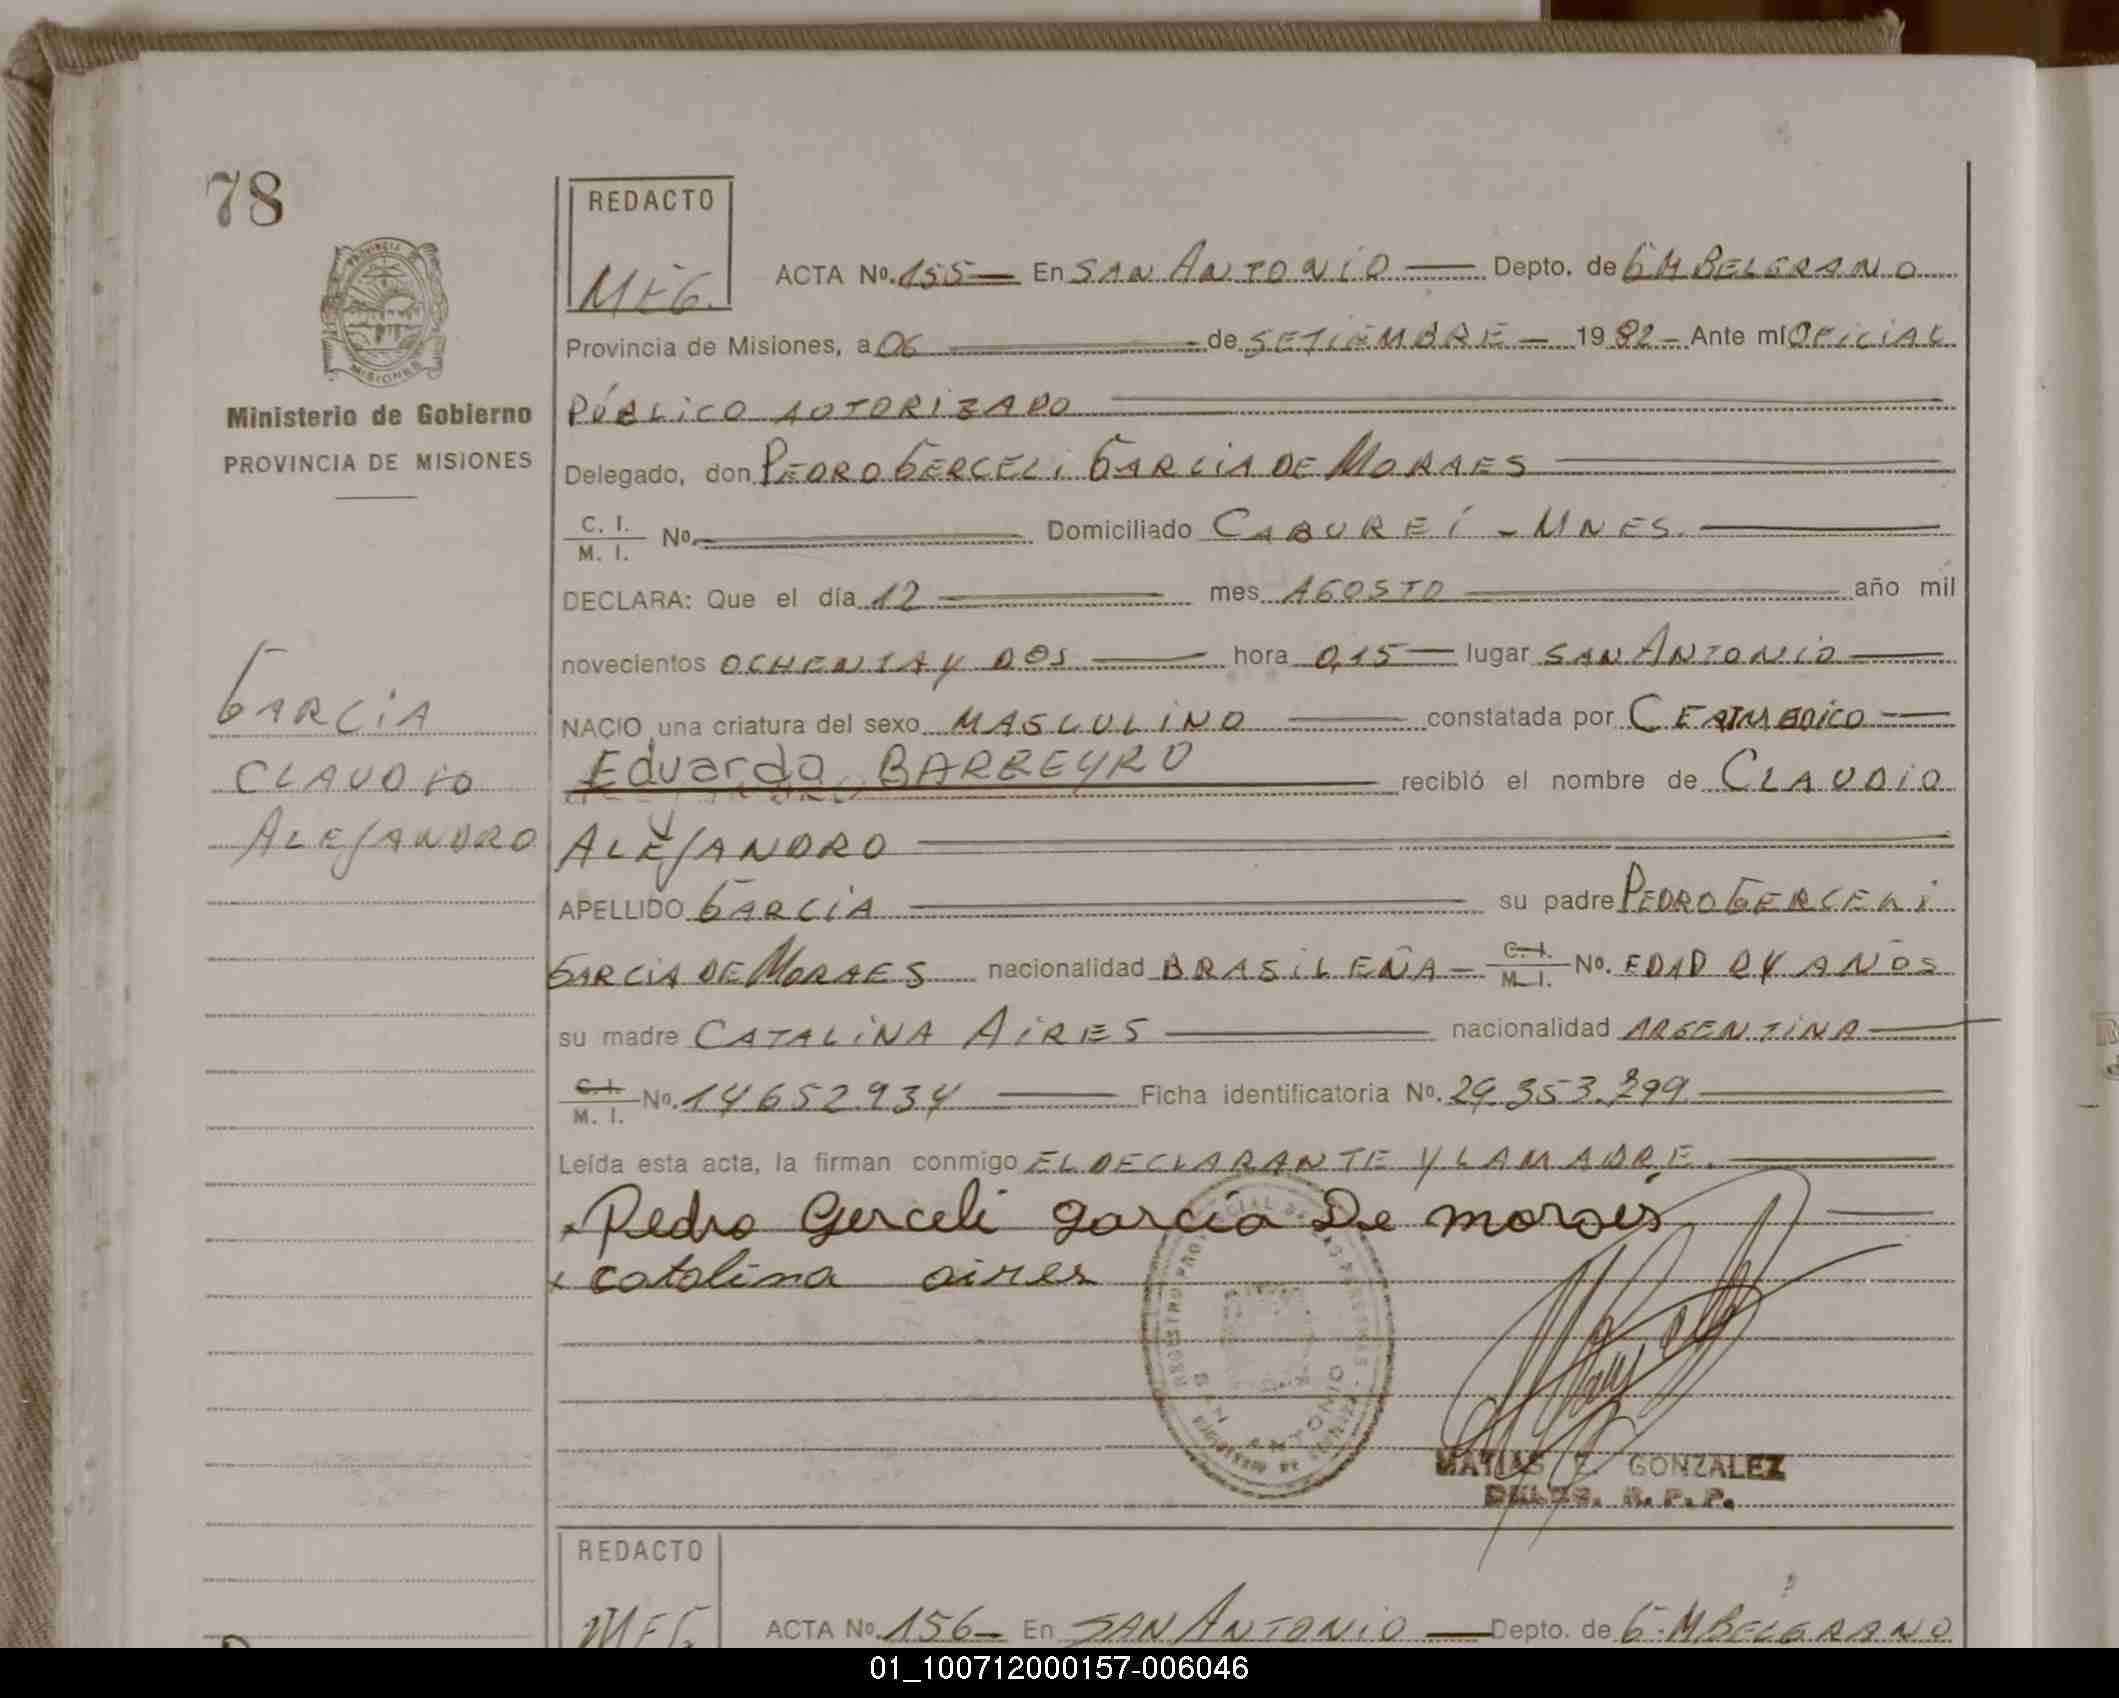 78
REDACTO
MEG.
ACTA Nº. 155 En SAN ANTONIO Depto. de G M BELGRANO
PROVINCIA
MISIONES
Provincia de Misiones, a 06 de SETIEMBRE 1982 Ante mí OFICIAL
Ministerio de Gobierno
PÚBLICO AUTORIZADO
PROVINCIA DE MISIONES
Delegado, don PEDRO GERCELI GARCIA DE MORAES
C. I.
M. I. Nº Domiciliado CABUREÍ - MNES.
DECLARA: Que el día 12 mes AGOSTO año mil
novecientos OCHENTA Y DOS hora 0,15 lugar SAN ANTONIO
GARCIA
NACIO una criatura del sexo MASCULINO constatada por CERT. MEDICO
CLAUDIO
Eduardo BARREYRO recibió el nombre de CLAUDIO
ALEJANDRO
ALEJANDRO
APELLIDO GARCIA su padre PEDRO GERCELI
GARCIA DE MORAES nacionalidad BRASILEÑA C. I. M. I. Nº. EDAD 24 AÑOS
su madre CATALINA AIRES nacionalidad ARGENTINA
C. I.
M. I. Nº. 14652934 Ficha identificatoria Nº. 29.353.299
Leída esta acta, la firman conmigo EL DECLARANTE Y LA MADRE.
x Pedro Gerceli garcia De morais
x catalina aires
SAN ANTONIO
MATIAS E. GONZALEZ
R. P. P.
REDACTO
MEG
ACTA Nº. 156 En SAN ANTONIO Depto. de G. M BELGRANO
01_100712000157-006046